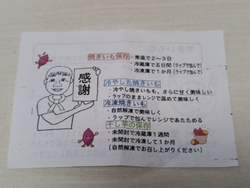 焼きいも保存
・常温で2～3日
・冷蔵庫で五日間(ラップで包んで)
・冷凍庫で1か月(ラップで包んで)
冷やした焼きいも
・冷やし焼きいもも、さらに甘く美味しい
・ラップのままレンジで温めて美味しく
冷凍焼きいも
・自然解凍で美味しく
・ラップで包んでレンジであたためる
干し芋の保存
・未開封で冷蔵庫1週間
・未開封で冷凍して1か月
(自然解凍でお召し上がりください)
感謝